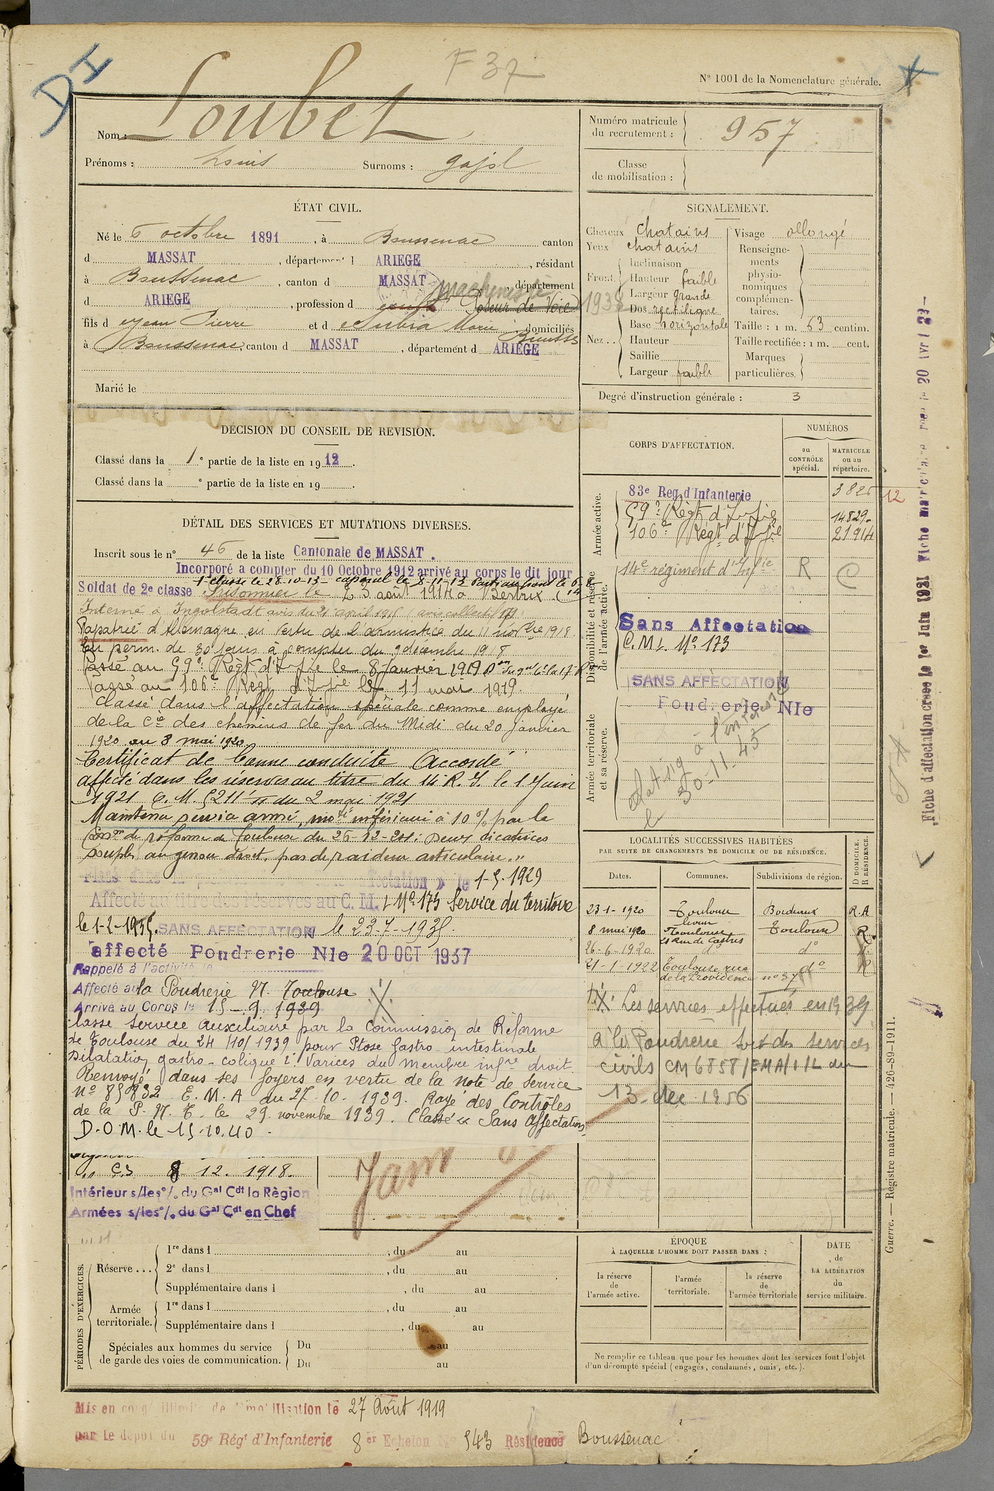 DI
F 37
N° 1001 de la Nomenclature générale.
Nom : Loubet
Prénoms : Louis Surnoms :
Numéro matricule du recrutement : 957
Classe de mobilisation :
ÉTAT CIVIL.
Né le 6 octobre 1891, à Boussenac canton
d MASSAT, département d ARIEGE, résidant
à Boussenac, canton d MASSAT, département
d ARIEGE, profession d Poseur de Voie
machiniste 1938
fils d Jean Pierre et d Marie domiciliés
à Boussenac, canton d MASSAT, département d ARIEGE
Marié le
SIGNALEMENT.
Cheveux chatains
Yeux chatains
Front
Inclinaison
Hauteur faible
Largeur grande
Nez
Dos rectiligne
Base horizontale
Hauteur
Saillie
Largeur faible
Visage allongé
Renseignements physionomiques complémentaires.
Taille : 1 m. 53 centim.
Taille rectifiée : 1 m. cent.
Marques particulières.
Degré d'instruction générale : 3
DÉCISION DU CONSEIL DE REVISION.
Classé dans la 1e partie de la liste en 1912.
Classé dans la e partie de la liste en 19 .
DÉTAIL DES SERVICES ET MUTATIONS DIVERSES.
Inscrit sous le n° 46 de la liste Cantonale de MASSAT.
Incorporé a compter du 10 Octobre 1912 arrivé au corps le dit jour
Soldat de 2e classe
1e classe le 28-10-13 - caporal le 8-11-13
Prisonnier le 23 août 1914 à Bertrix
Interné à Ingolstadt avis du 21 avril 1915
Rapatrié d'Allemagne en vertu de l'armistice du 11 novbre 1918
En perm. de 30 jours à compter du 9 décembre 1918
Passé au 59e Régt d'Infie le 8 Janvier 1919
Passé au 106e Régt d'Infie le 11 mai 1919.
Classé dans l'affectation spéciale comme employé
de la Cie des chemins de fer du Midi du 20 janvier
1920 au 3 mai 1920
Certificat de bonne conduite Accordé
affecté dans les réserves au titre du 14 R.I. le 1 Juin
1921 C.M. 5211 du 2 mai 1921
Maintenu service armé, inférieure à 10% par la
Con de réforme de Toulouse du 26-12-24: Deux cicatrices
souples au genou droit, pas de raideur articulaire."
1-5-1929
Affecté au titre des réserves au C.M.I N° 173 Service du territoire
le 1-2-1935 SANS AFFECTATION le 23-7-1935
affecté Poudrerie Nle 20 OCT 1937
Rappelé à l'activité le
Affecté à la Poudrerie N. Toulouse
Arrivé au Corps le 15-9-1939
Classé Service auxiliaire par la Commission de Réforme
de Toulouse du 24/10/1939 pour Ptose gastro-intestinale
Dilatation gastro-colique 2° Varices du membre infre droit.
Renvoyé dans ses foyers en vertu de la note de service
n° 85832 E.M.A du 27-10-1939. Rayé des Contrôles
de la P.N.T. le 29 novembre 1939. Classé "Sans Affectation"
D.O.M. le 15.10.40.
8 12. 1918.
Intérieur s/les°/. du Gal Cdt la Région
Armées s/les°/. du Gal Cdt en Chef
CORPS D'AFFECTATION.
NUMÉROS
au CONTRÔLE spécial.
MATRICULE ou au répertoire.
Armée active.
83e Reg d'Infanterie
59e Régt d'Infie 14829
106e Régt d'Infie 21914
Disponibilité et réserve de l'armée active.
14e régiment d'Infie R C
Sans Affectation
C.M.I. N° 173
Armée territoriale et sa réserve.
SANS AFFECTATION
Poudrerie Nle
30-11-45
LOCALITÉS SUCCESSIVES HABITÉES
PAR SUITE DE CHANGEMENTS DE DOMICILE OU DE RÉSIDENCE.
Dates. Communes. Subdivisions de région. D DOMICILE. R RÉSIDENCE.
23-1-1920 Toulouse Bordeaux R.A
8 mai 1920 Toulouse Toulouse R
21 Rue de Castres
26-6-1920 d° d° R
21-1-1922 Toulouse rue de la Providence n° 37 d° R
Les services effectués en 1939
à la Poudrerie sont des services
civils CM 6858/EMA/1/L du
13-dec 1956
PÉRIODES D'EXERCICES.
Réserve
1re dans l , du au
2e dans l , du au
Supplémentaire dans l , du au
Armée territoriale.
1re dans l , du au
Supplémentaire dans l , du au
Spéciales aux hommes du service de garde des voies de communication.
Du au
Du au
ÉPOQUE
À LAQUELLE L'HOMME DOIT PASSER DANS :
la réserve de l'armée active.
l'armée territoriale.
la réserve de l'armée territoriale
DATE de LA LIBÉRATION du service militaire.
Ne remplir ce tableau que pour les hommes dont les services font l'objet
d'un décompte spécial (engagés, condamnés, omis, etc.).
Mis en congé illimité de démobilisation le 27 Août 1919
par le dépôt du 59e Régt d'Infanterie 8er Echelon N° 543 Résidence Boussenac
Guerre. — Registre matricule. — 426-89-1911.